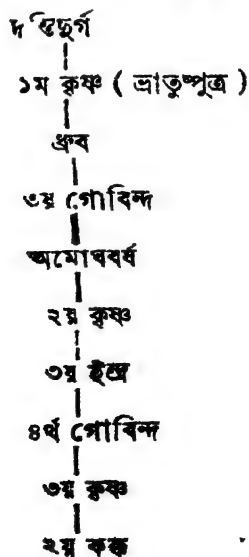 দন্তিদুর্গ
১ম কৃষ্ণ ( ভ্রাতুষ্পুত্র )
ধ্রুব
৩য় গোবিন্দ
অমোঘবর্ষ
২য় কৃষ্ণ
৩য় ইন্দ্র
৪র্থ গোবিন্দ
৩য় কৃষ্ণ
২য় কক্ক